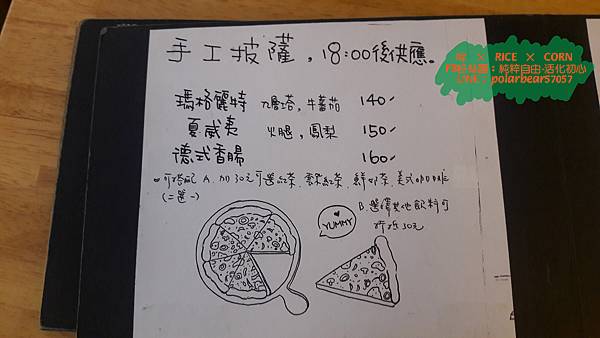 手工披薩，18:00後供應。
瑪格麗特 九層塔，牛蕃茄 140
夏威夷 火腿，鳳梨 150
德式香腸 160
可搭配 A. 加30元可選紅茶、
(二選一)
B. 選擇其他飲料可
折抵30元
YUMMY
× RICE × CORN
FB粉絲團：純粹自由‧活化初心
LINE：polarbear57057